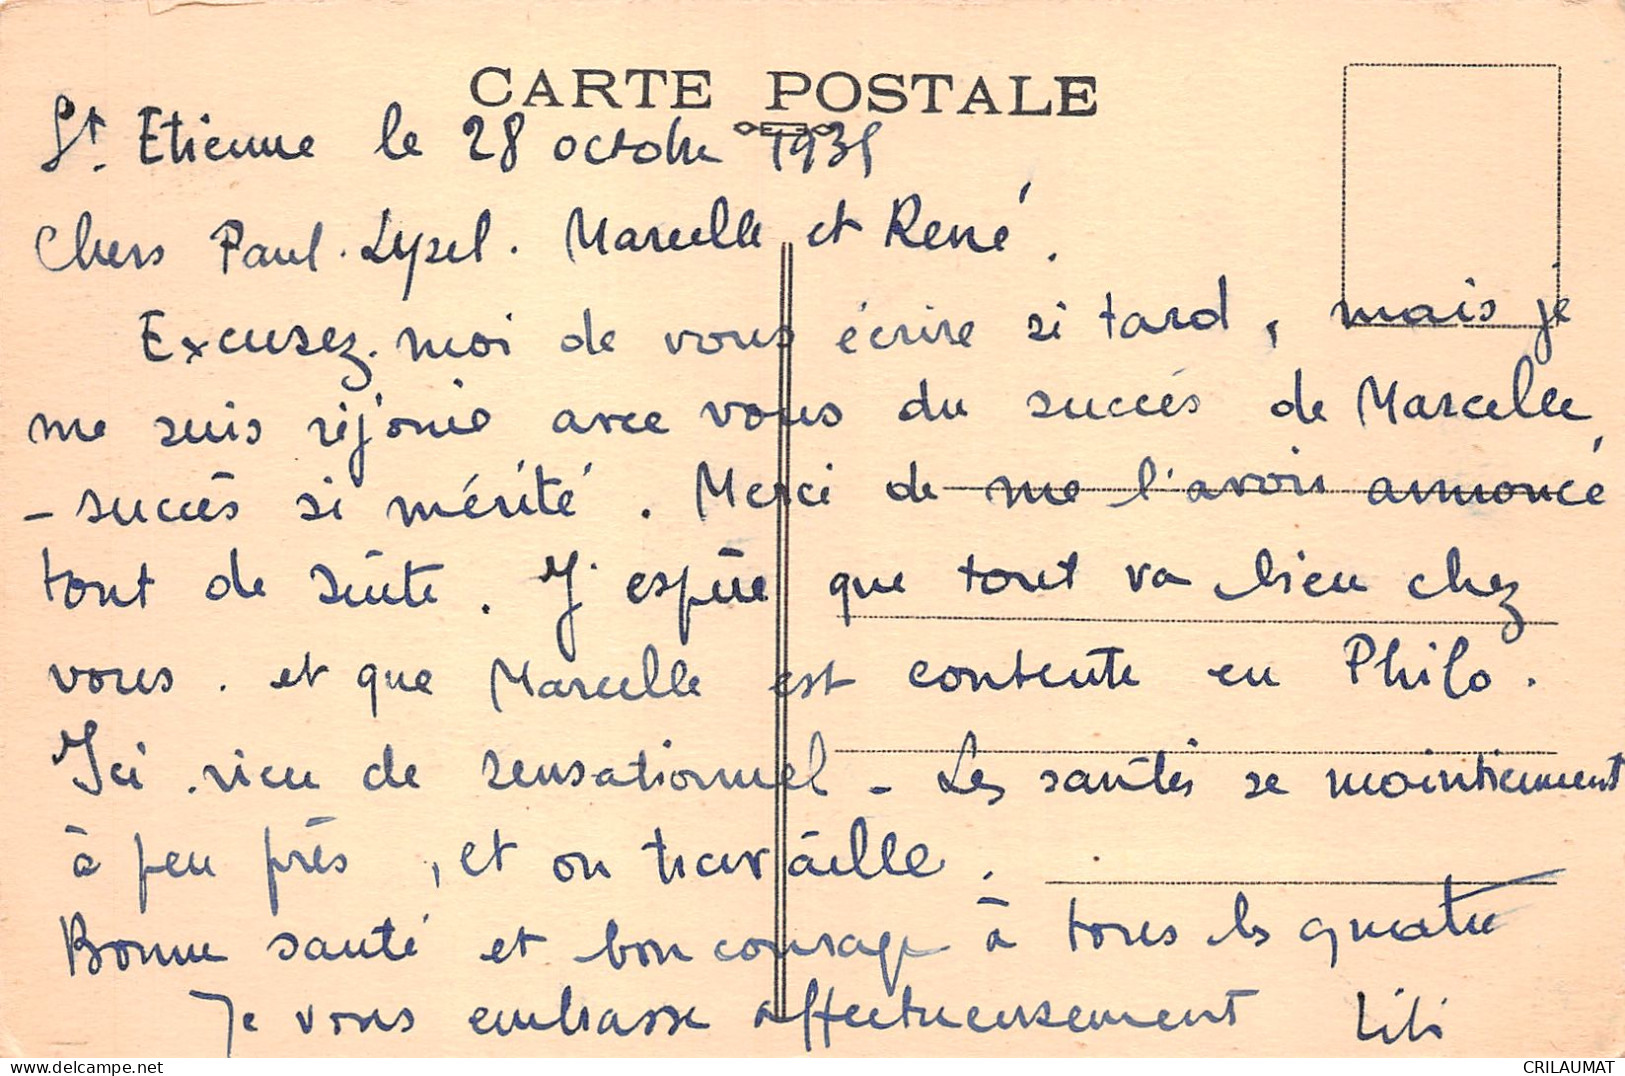 CARTE POSTALE
St. Etienne le 28 octobre 1935
Chers Paul. Lysel. Marcelle et René.
Excusez.moi de vous écrire si tard, mais je
me suis réjouie avec vous du succès de Marcelle
- succès si mérité. Merci de me l'avoir annoncé
tout de suite. J'espère que tout va bien chez
vous. et que Marcelle est contente en Philo.
Ici. rien de sensationnel - Les santés se maintiennent
à peu près, et on travaille.
Bonne santé et bon courage à tous les quatre
Je vous embrasse affectueusement Lili
CRILAUMAT